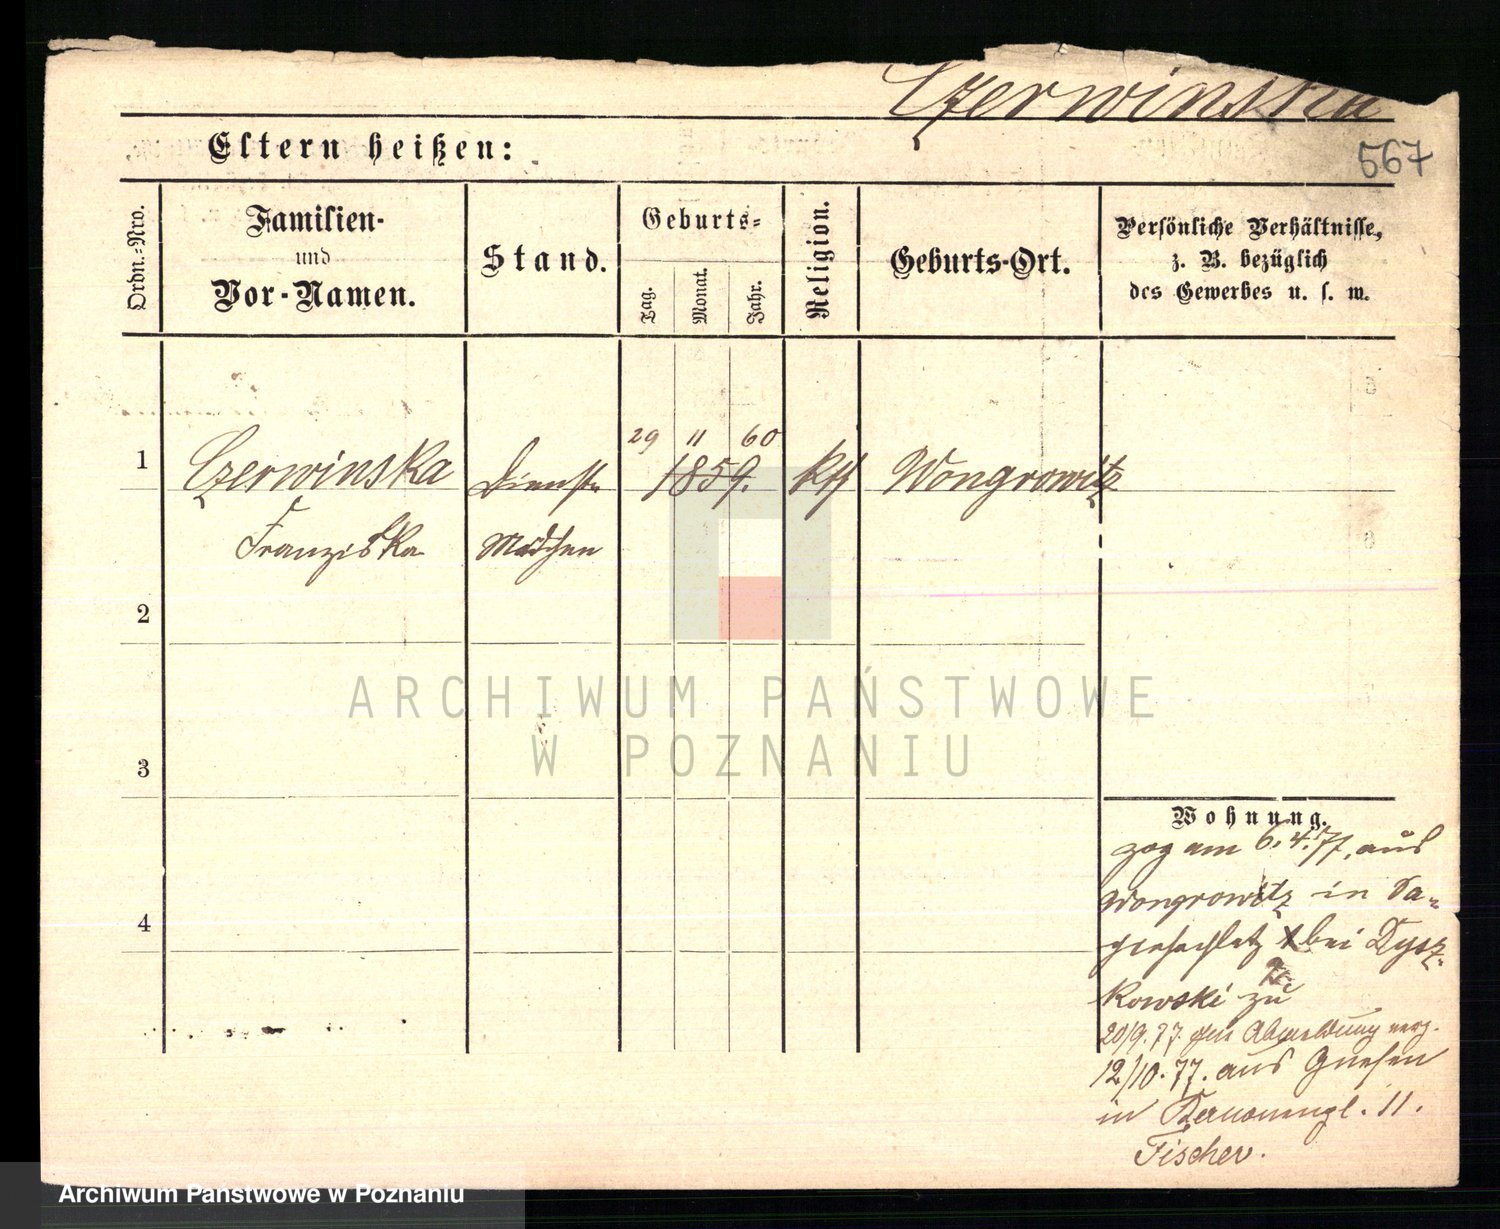 Czerwinska
567
Eltern heißen:
Ordn.-Nro.
Familien-
und
Vor-Namen.
Stand.
Geburts-
Tag.
Monat.
Jahr.
Religion.
Geburts-Ort.
Persönliche Verhältnisse,
z. B. bezüglich
des Gewerbes u. s. w.
29 11 60
1 Czerwinska Dienst- 1859. kth Wongrowitz
Franziska Mädchen
2
3
4
Wohnung.
zog am 6.4.77. aus
Wongrowitz in
bei Dysz-
kowski zu
20/9.77. Abmeldung
12/10.77. aus Gnesen
in 11.
Fischer.
ARCHIWUM PAŃSTWOWE
W POZNANIU
Archiwum Państwowe w Poznaniu